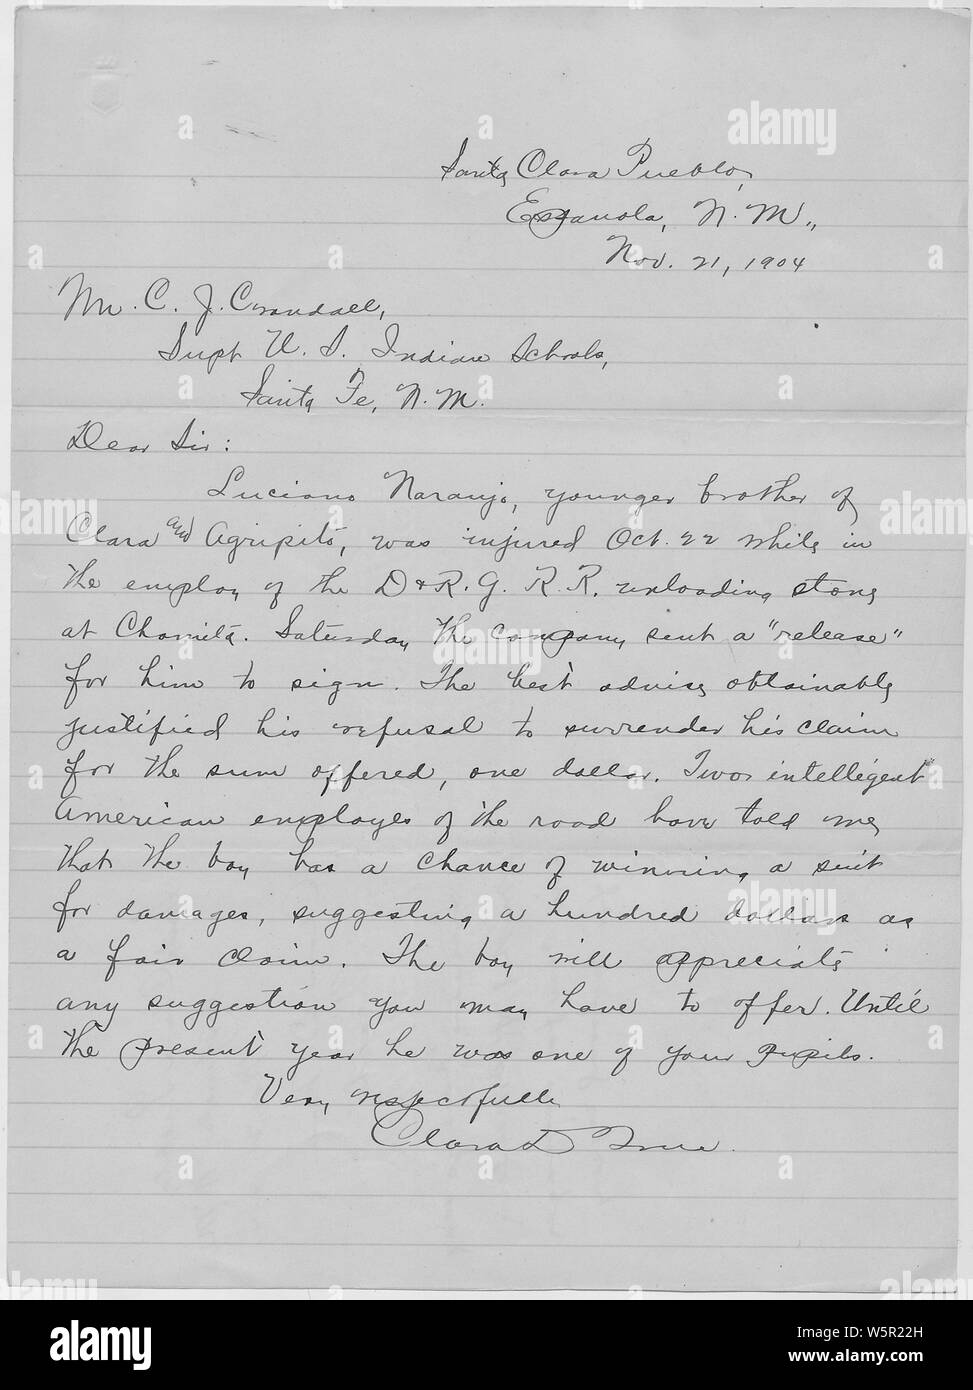 Santa Clara Pueblo,
Espanola, N. M.,
Nov. 21, 1904
Mr. C. J. Crandall,
Supt U. S. Indian Schools,
Santa Fe, N. M.
Dear Sir:
Luciano Naranjo, younger brother of
Clara and Agripito, was injured Oct. 22 while in
the employ of the D & R. G. R. R. unloading stone
at Chamita. Saturday the company sent a "release"
for him to sign. The best advise obtainable
justified his refusal to surrender his claim
for the sum offered, one dollar. Two intelligent
American employes of the road have told me
that the boy has a chance of winning a suit
for damages, suggesting a hundred dollars as
a fair claim. The boy will appreciate
any suggestion you may have to offer. Until
the present year he was one of your pupils.
Very respectfully
Clara D True.
alamy
Image ID: W5R22H
www.alamy.com